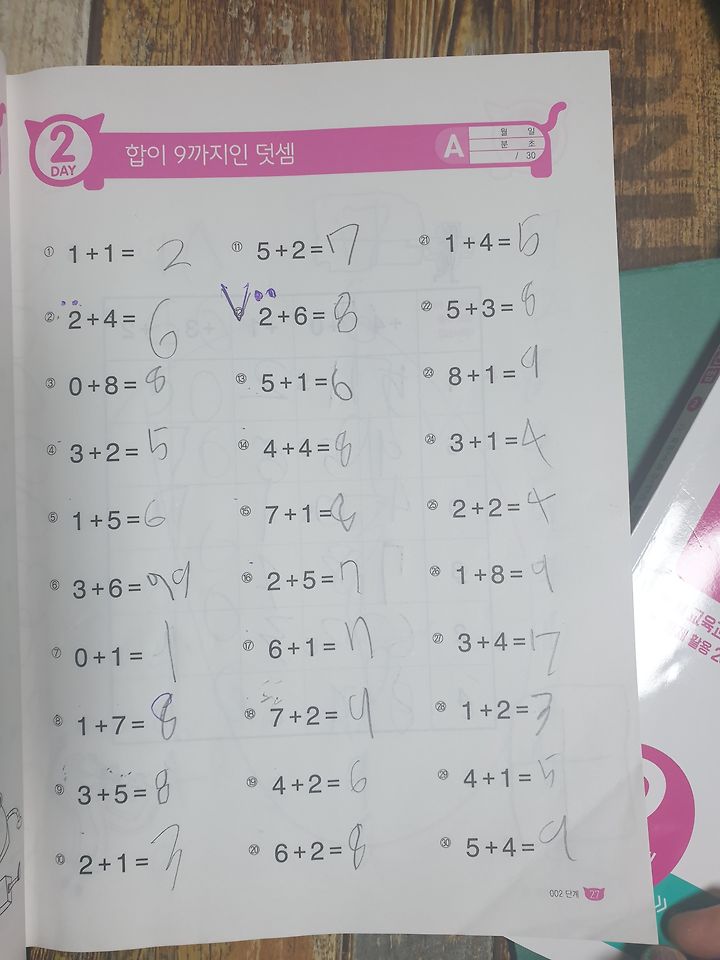 2
DAY
합이 9까지인 덧셈
A
월 일
분 초
/ 30
① 1+1= 2
② 2+4= 6
③ 0+8= 8
④ 3+2= 5
⑤ 1+5= 6
⑥ 3+6= 99
⑦ 0+1= 1
⑧ 1+7= 8
⑨ 3+5= 8
⑩ 2+1= 3
⑪ 5+2= 7
⑫ 2+6= 8
⑬ 5+1= 6
⑭ 4+4= 8
⑮ 7+1= 8
⑯ 2+5= 7
⑰ 6+1= 7
⑱ 7+2= 9
⑲ 4+2= 6
⑳ 6+2= 8
㉑ 1+4= 5
㉒ 5+3= 8
㉓ 8+1= 9
㉔ 3+1= 4
㉕ 2+2= 4
㉖ 1+8= 9
㉗ 3+4= 7
㉘ 1+2= 3
㉙ 4+1= 5
㉚ 5+4= 9
002 단계 27